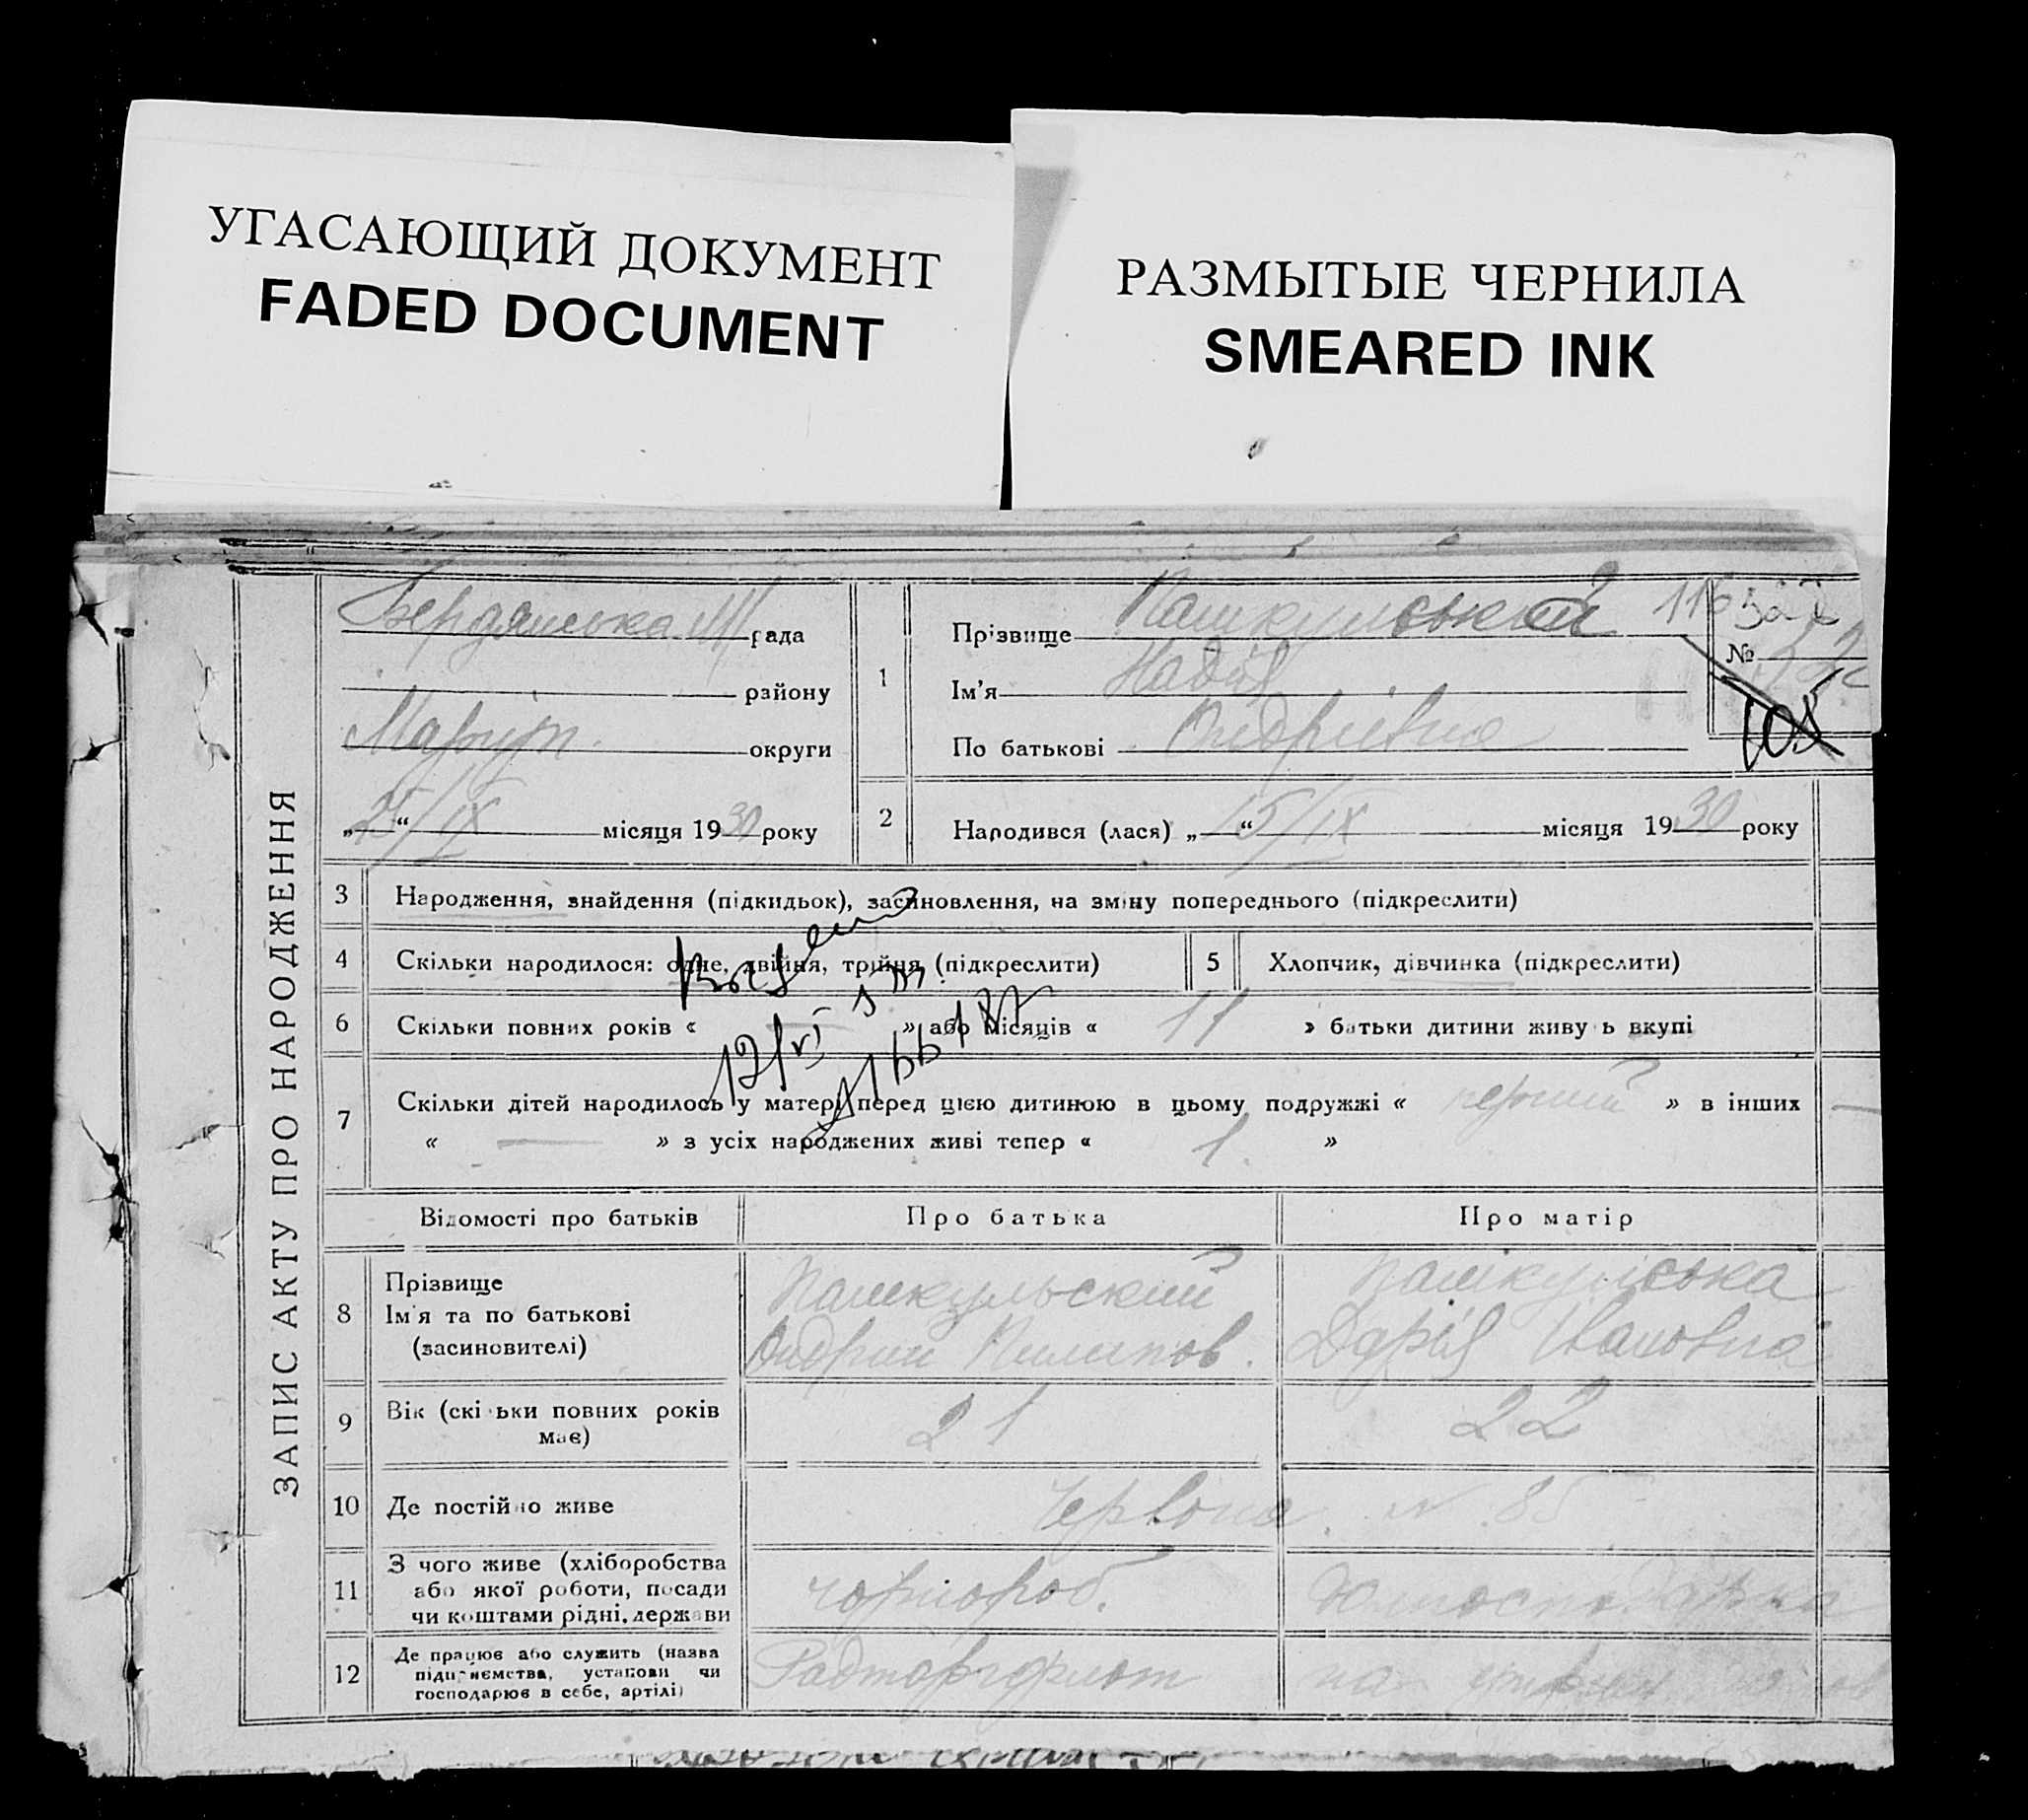 УГАСАЮЩИЙ ДОКУМЕНТ
FADED DOCUMENT
РАЗМЫТЫЕ ЧЕРНИЛА
SMEARED INK
ЗАПИС АКТУ ПРО НАРОДЖЕННЯ
Бердянська рада
району
Маріуп. округи
„ “ /IX місяця 1930 року
1
Прізвище
116
№
Ім'я Надія
По батькові Ондріївна
108
2
Народився (лася) „ “ 15/IX місяця 1930 року
3 Народження, знайдення (підкидьок), засиновлення, на зміну попереднього (підкреслити)
4 Скільки народилося: одне, двійня, трійня (підкреслити)
5 Хлопчик, дівчинка (підкреслити)
6 Скільки повних років « — » або місяців « 11 » батьки дитини живуть вкупі
7 Скільки дітей народилось у матері перед цією дитиною в цьому подружжі « перший » в інших —
« — » з усіх народжених живі тепер « 1. »
Відомості про батьків Про батька Про матір
8 Прізвище Пашкульский Пашкульська
Ім'я та по батькові Ондрий Пилипов. Дарія Івановна
(засиновителі)
9 Вік (скільки повних років має) 21 22
10 Де постійно живе Червона. № 85
11 З чого живе (хліборобства або якої роботи, посади чи коштами рідні, держави чорнороб.
12 Де працює або служить (назва підприємства, установи чи господарює в себе, артілі) Радторгфлот на